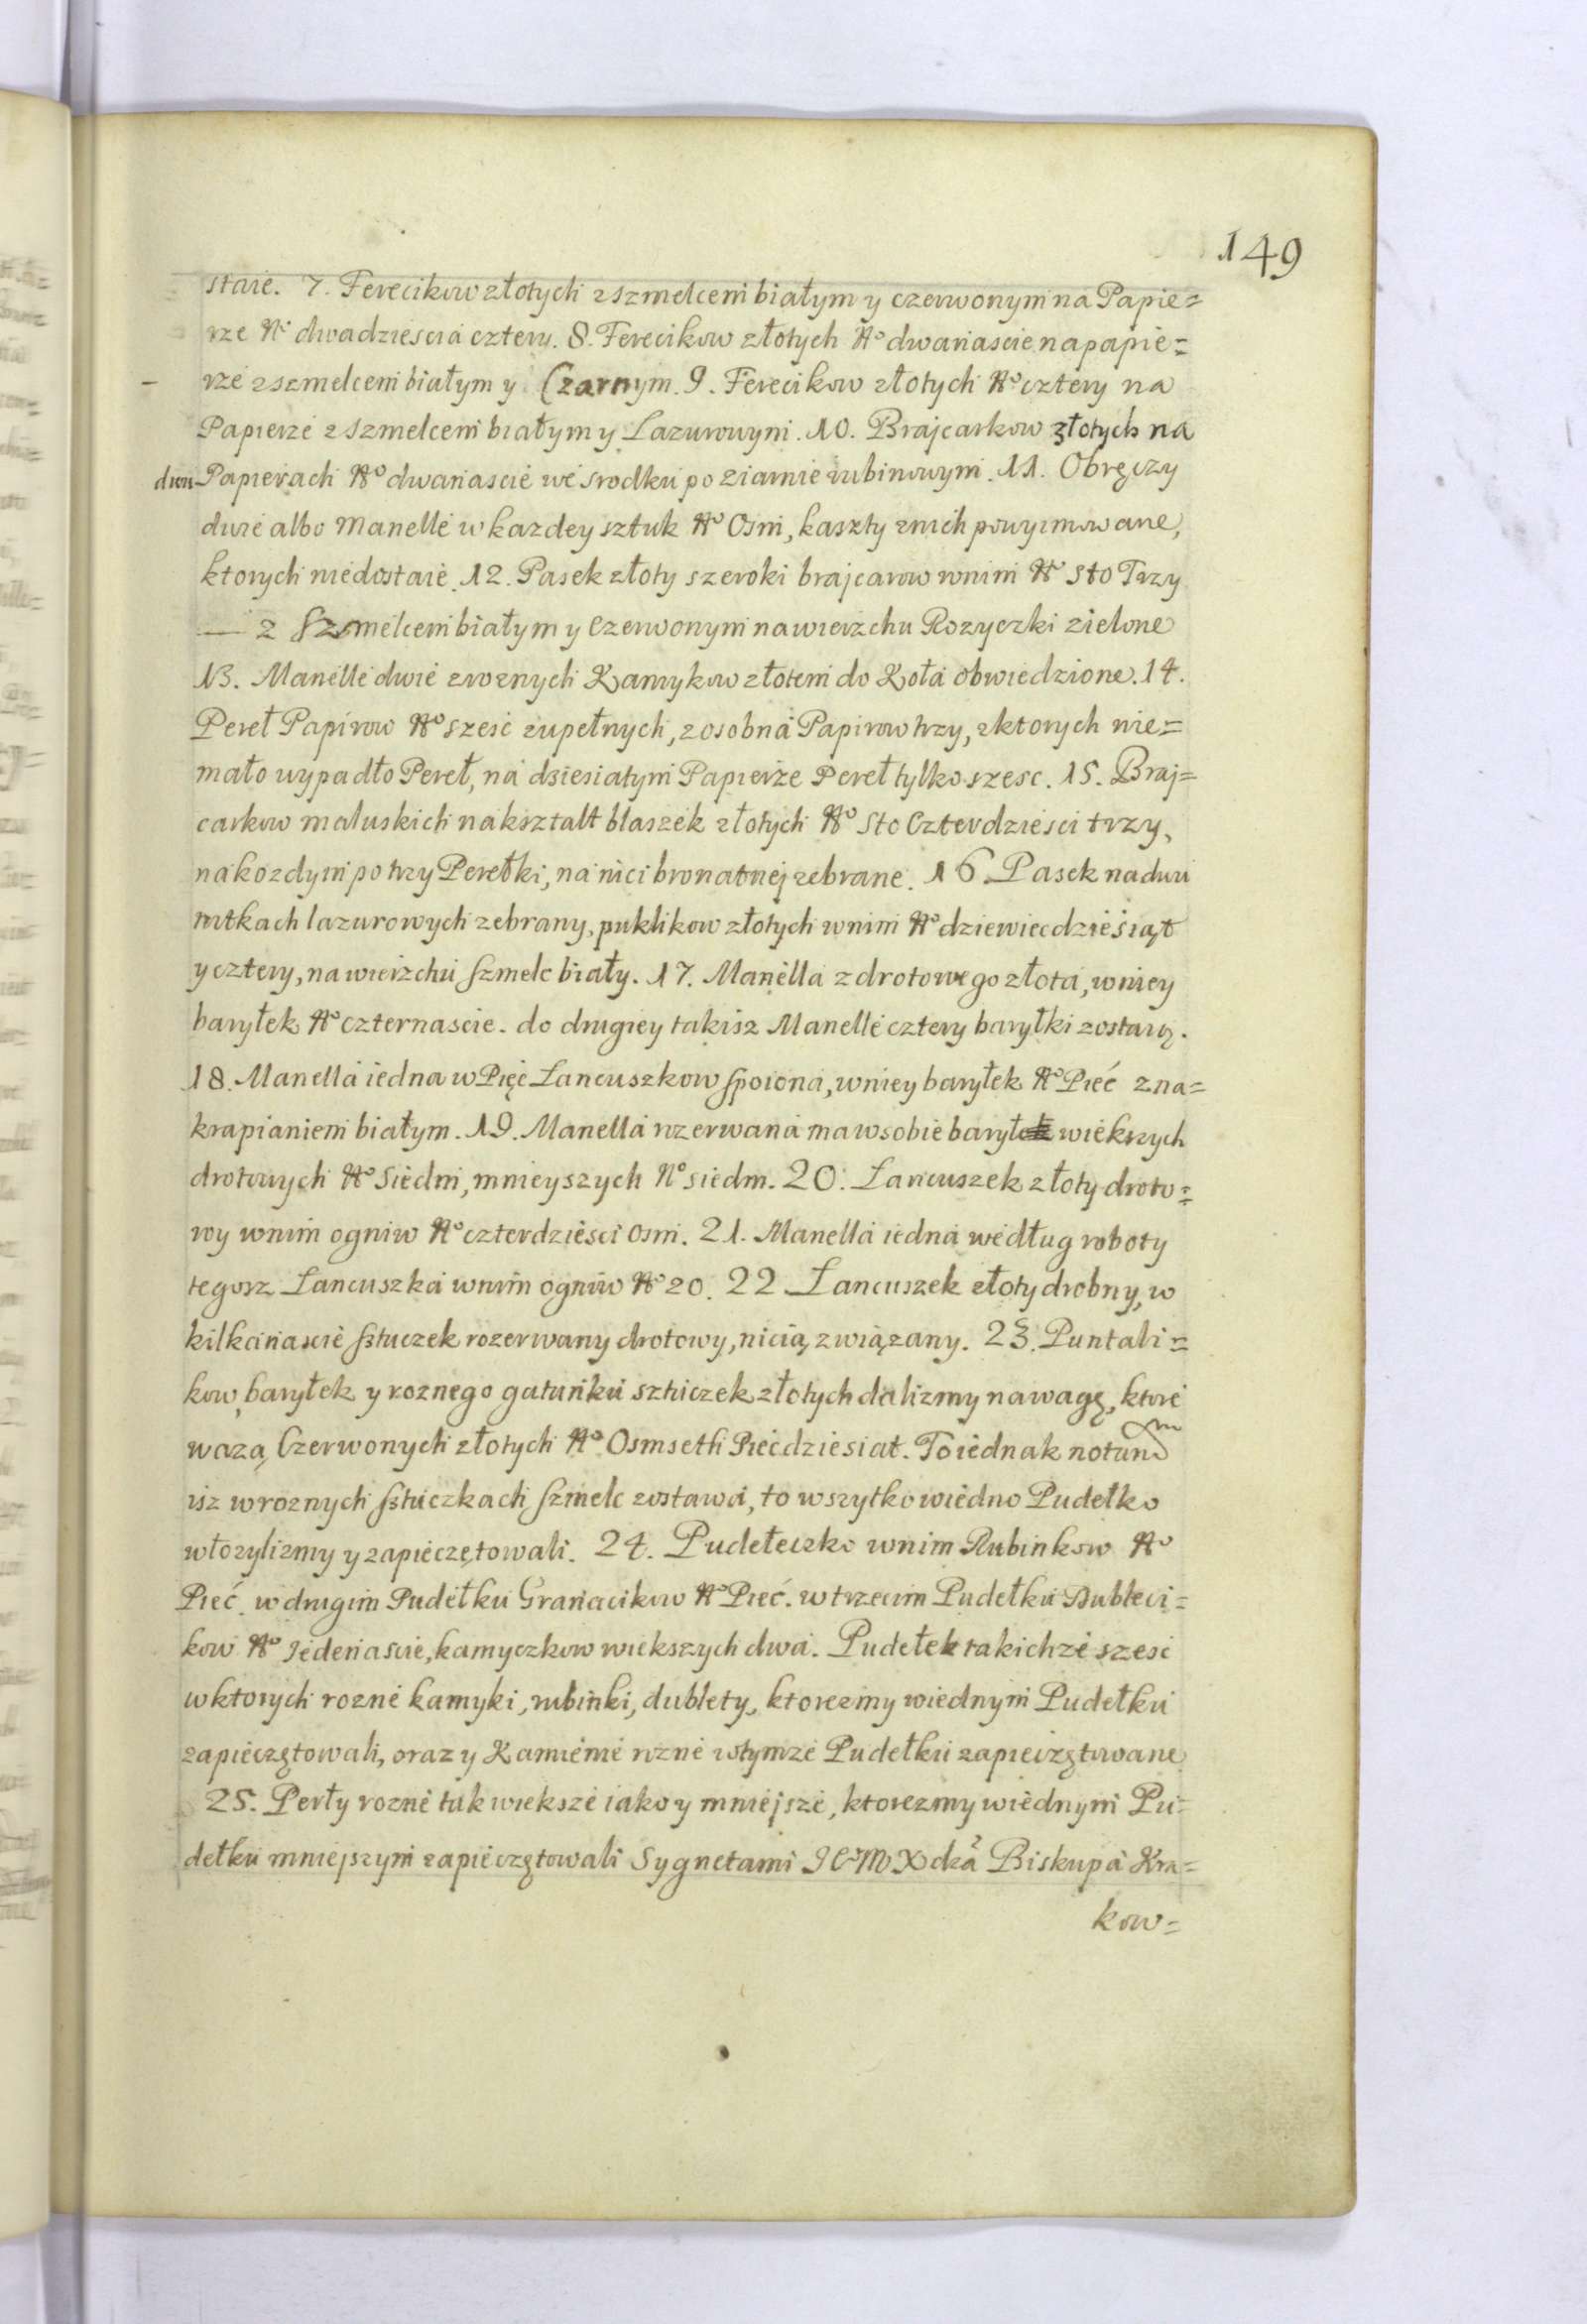 149
staie. 7. Ferecikow złotych z szmelcem białym y czerwonym na Papie=
rze No dwadziescia cztery. 8. Ferecikow złotych No dwanascie na papie=
- rze z szmelcem białym y Czarnym. 9. Ferecikow złotych No cztery na
Papierze z szmelcem białym y Lazurowym. 10. Brajcarkow złotych na
dwu Papierach No dwanascie we srodku po ziarnie rubinowym. 11. Obręczy
dwie albo Manelle w kazdey sztuk No Osm, kaszty z nich powyimowane,
ktorych niedostaie. 12. Pasek złoty szeroki brajcarow w nim No Sto Trzy
— z Szmelcem białym y Czerwonym na wierzchu Rozyczki zielone
13. Manelle dwie z roznych Kamykow złotem do Koła obwiedzione. 14.
Pereł Papirow No szesc zupełnych, z osobna Papirow trzy, z ktorych nie=
mało wypadło Pereł, na dziesiatym Papierze Pereł tylko szesc. 15. Braj=
carkow maluskich na kształt blaszek złotych No Sto Czterdziesci trzy,
na kozdym po trzy Perełki, na nici bronatnej zebrane. 16 Pasek na dwu
nitkach lazurowych zebrany, puklikow złotych w nim No dziewiecdziesiąt
y cztery, na wierzchu szmelc biały. 17. Manella z drotowego złota, w niey
baryłek No czternascie. do drugiey takisz Manelle cztery baryłki zostaią.
18. Manella iedna w Pięc Lancuszkow spoiona, w niey baryłek No Pieć z na=
krapianiem białym. 19. Manella rozerwana ma w sobie baryłek wiekszych
drotowych No Siedm, mnieyszych No siedm. 20. Lancuszek złoty droto=
wy w nim ogniw No czterdziesci osm. 21. Manella iedna według roboty
tegosz Lancuszka w nim ogniw No 20. 22 Lancuszek złoty drobny, w
kilkanascie sztuczek rozerwany drotowy, nicią związany. 23. Puntali=
kow, baryłek y roznego gatunku sztuczek złotych dalizmy na wagę, ktore
wazą Czerwonych złotych No Osmseth Piecdziesiat. To iednak notandm
isz w roznych sztuczkach szmelc zostawa, to wszytko w iedno Pudełko
włozylizmy y zapieczętowali. 24. Pudełeczko w nim Rubinkow No
Pieć. w drugim Pudełku Granacikow No Pieć. w trzecim Pudełku Dubleci=
kow No Jedenascie, kamyczkow wiekszych dwa. Pudełek takichze szesc
w ktorych rozne kamyki, rubinki, dublety, ktorezmy w iednym Pudełku
zapieczętowali, oraz y Kamienie rozne w tymze Pudełku zapieczętowane
25. Perły rozne tak wieksze iako y mniejsze, ktorezmy w iednym Pu=
dełku mniejszym zapieczętowali Sygnetami JCM Xdza Biskupa Kra=
kow=